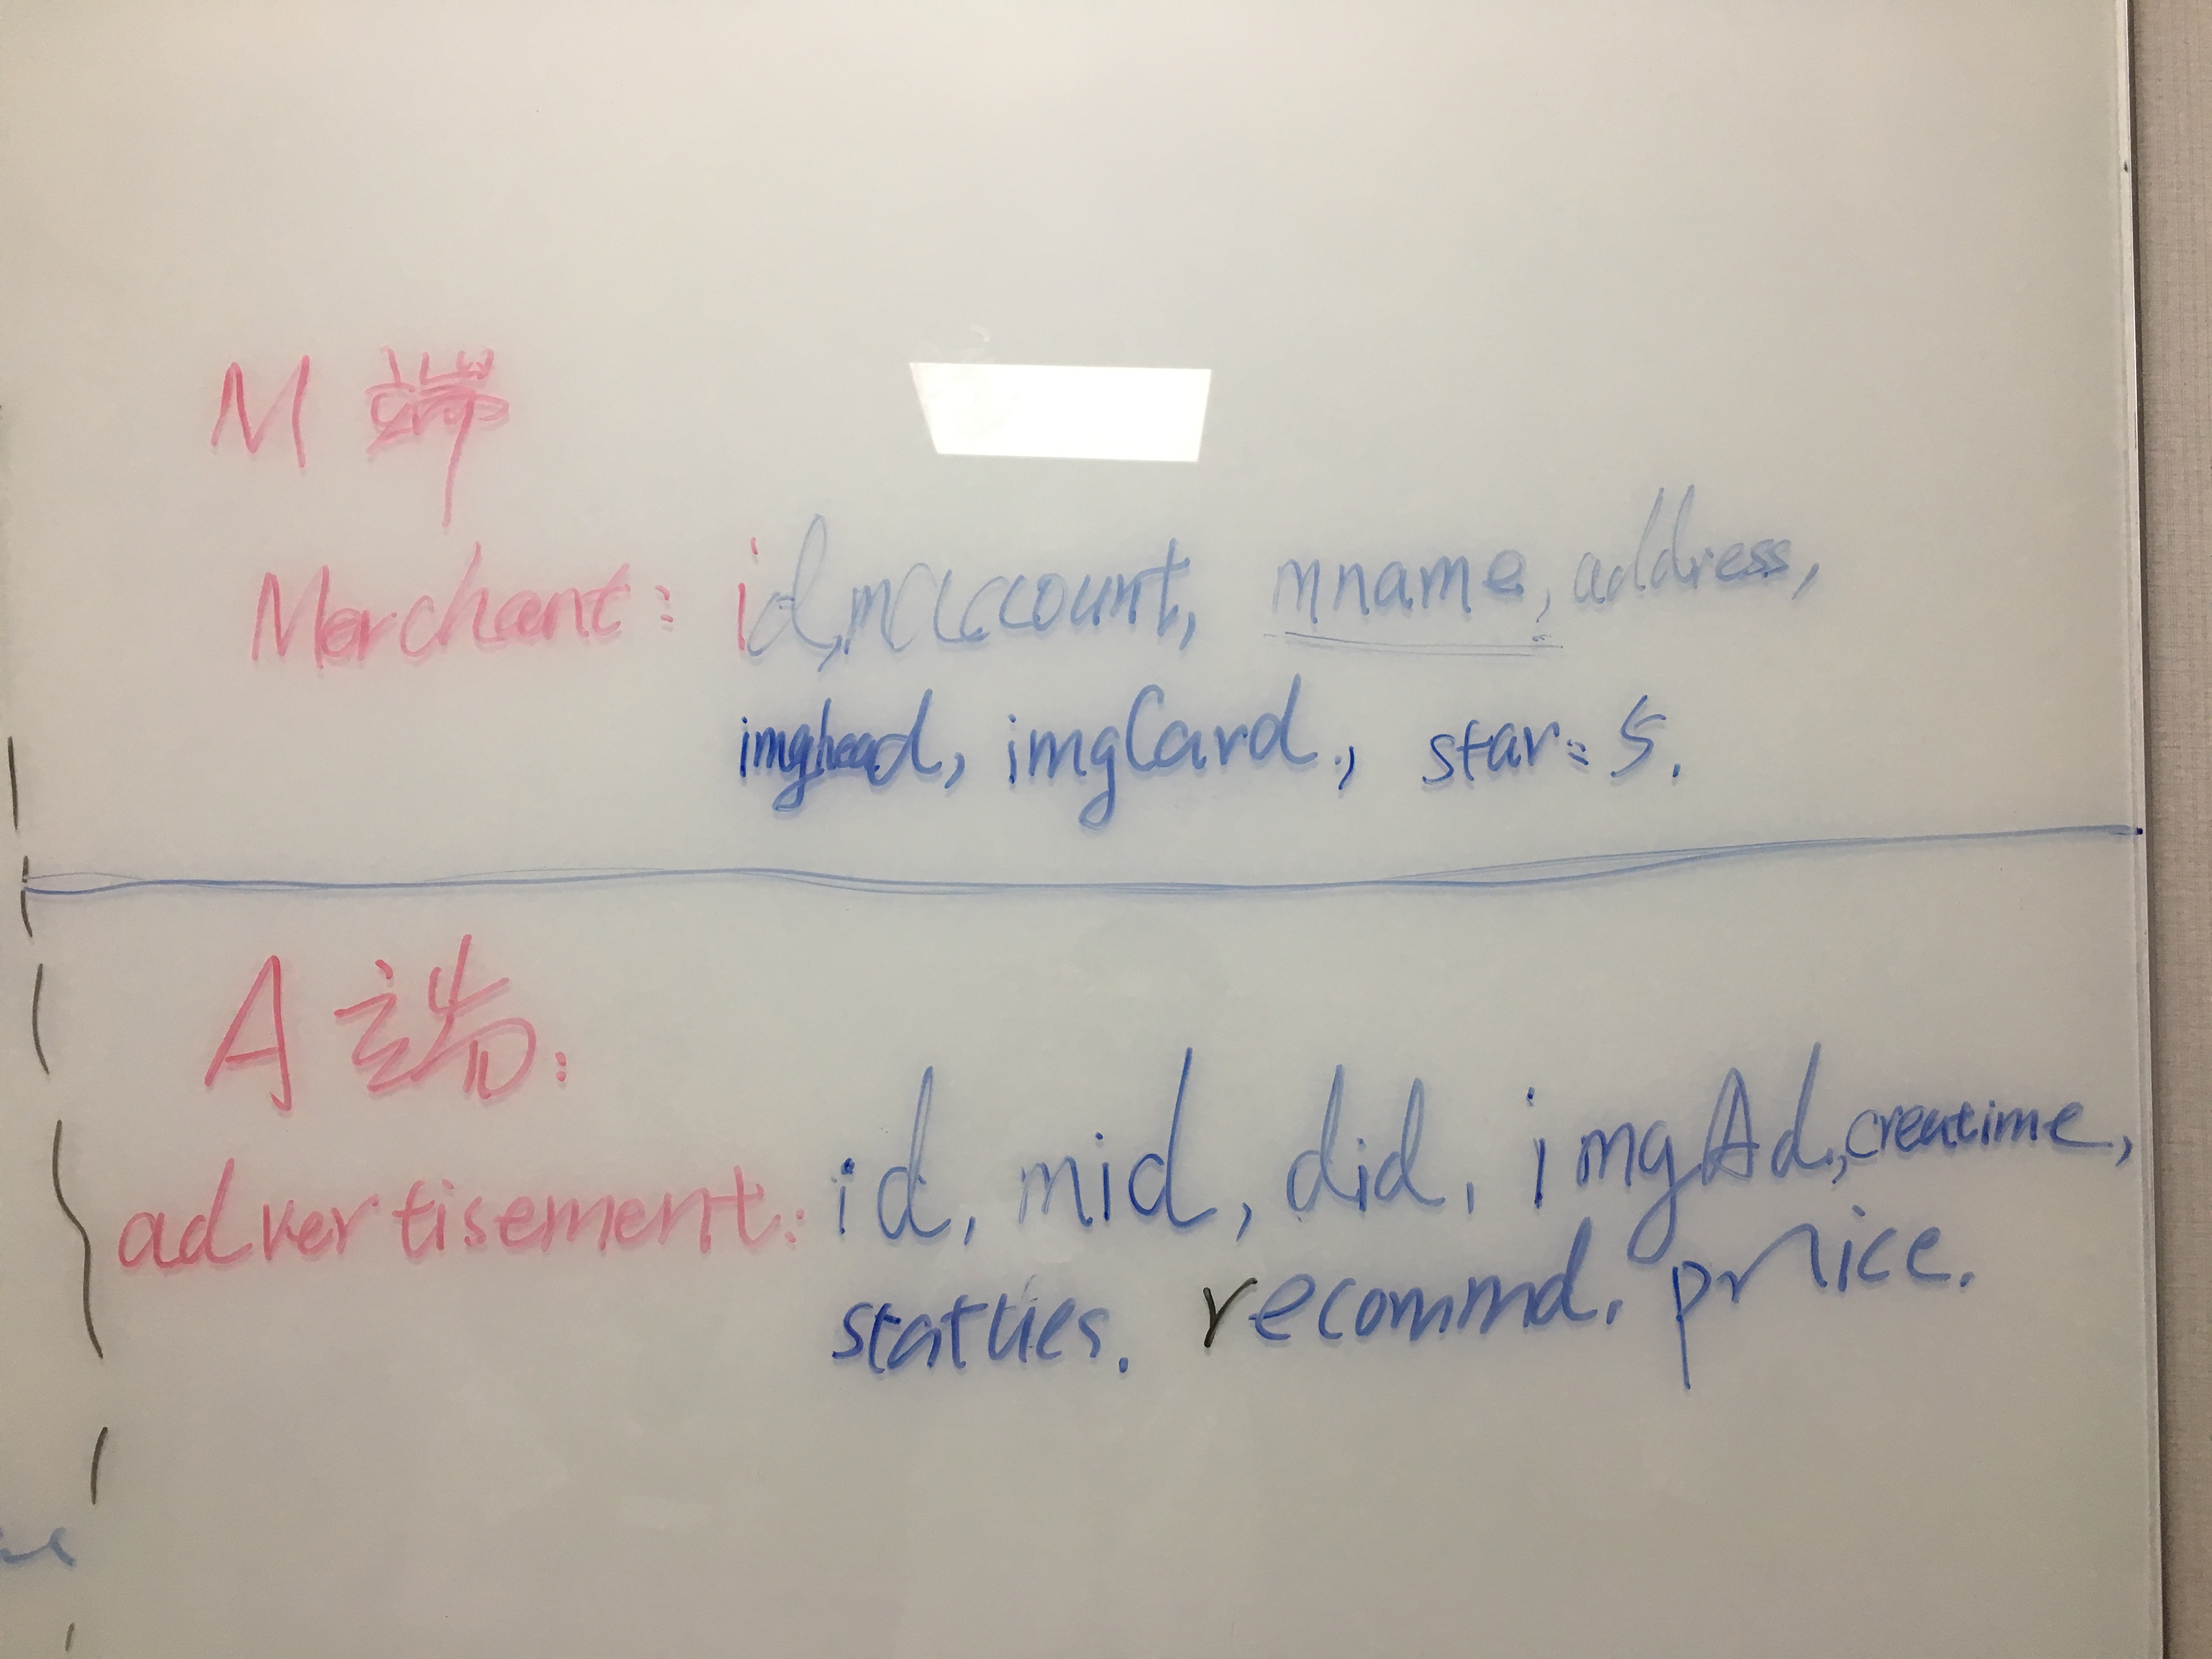 M 端
Merchant: id, maccount, mname, address,
imghead, imgCard., star: 5.
A 端:
advertisement: id, mid, did, imgAd, creatime,
statties. recommd. price.